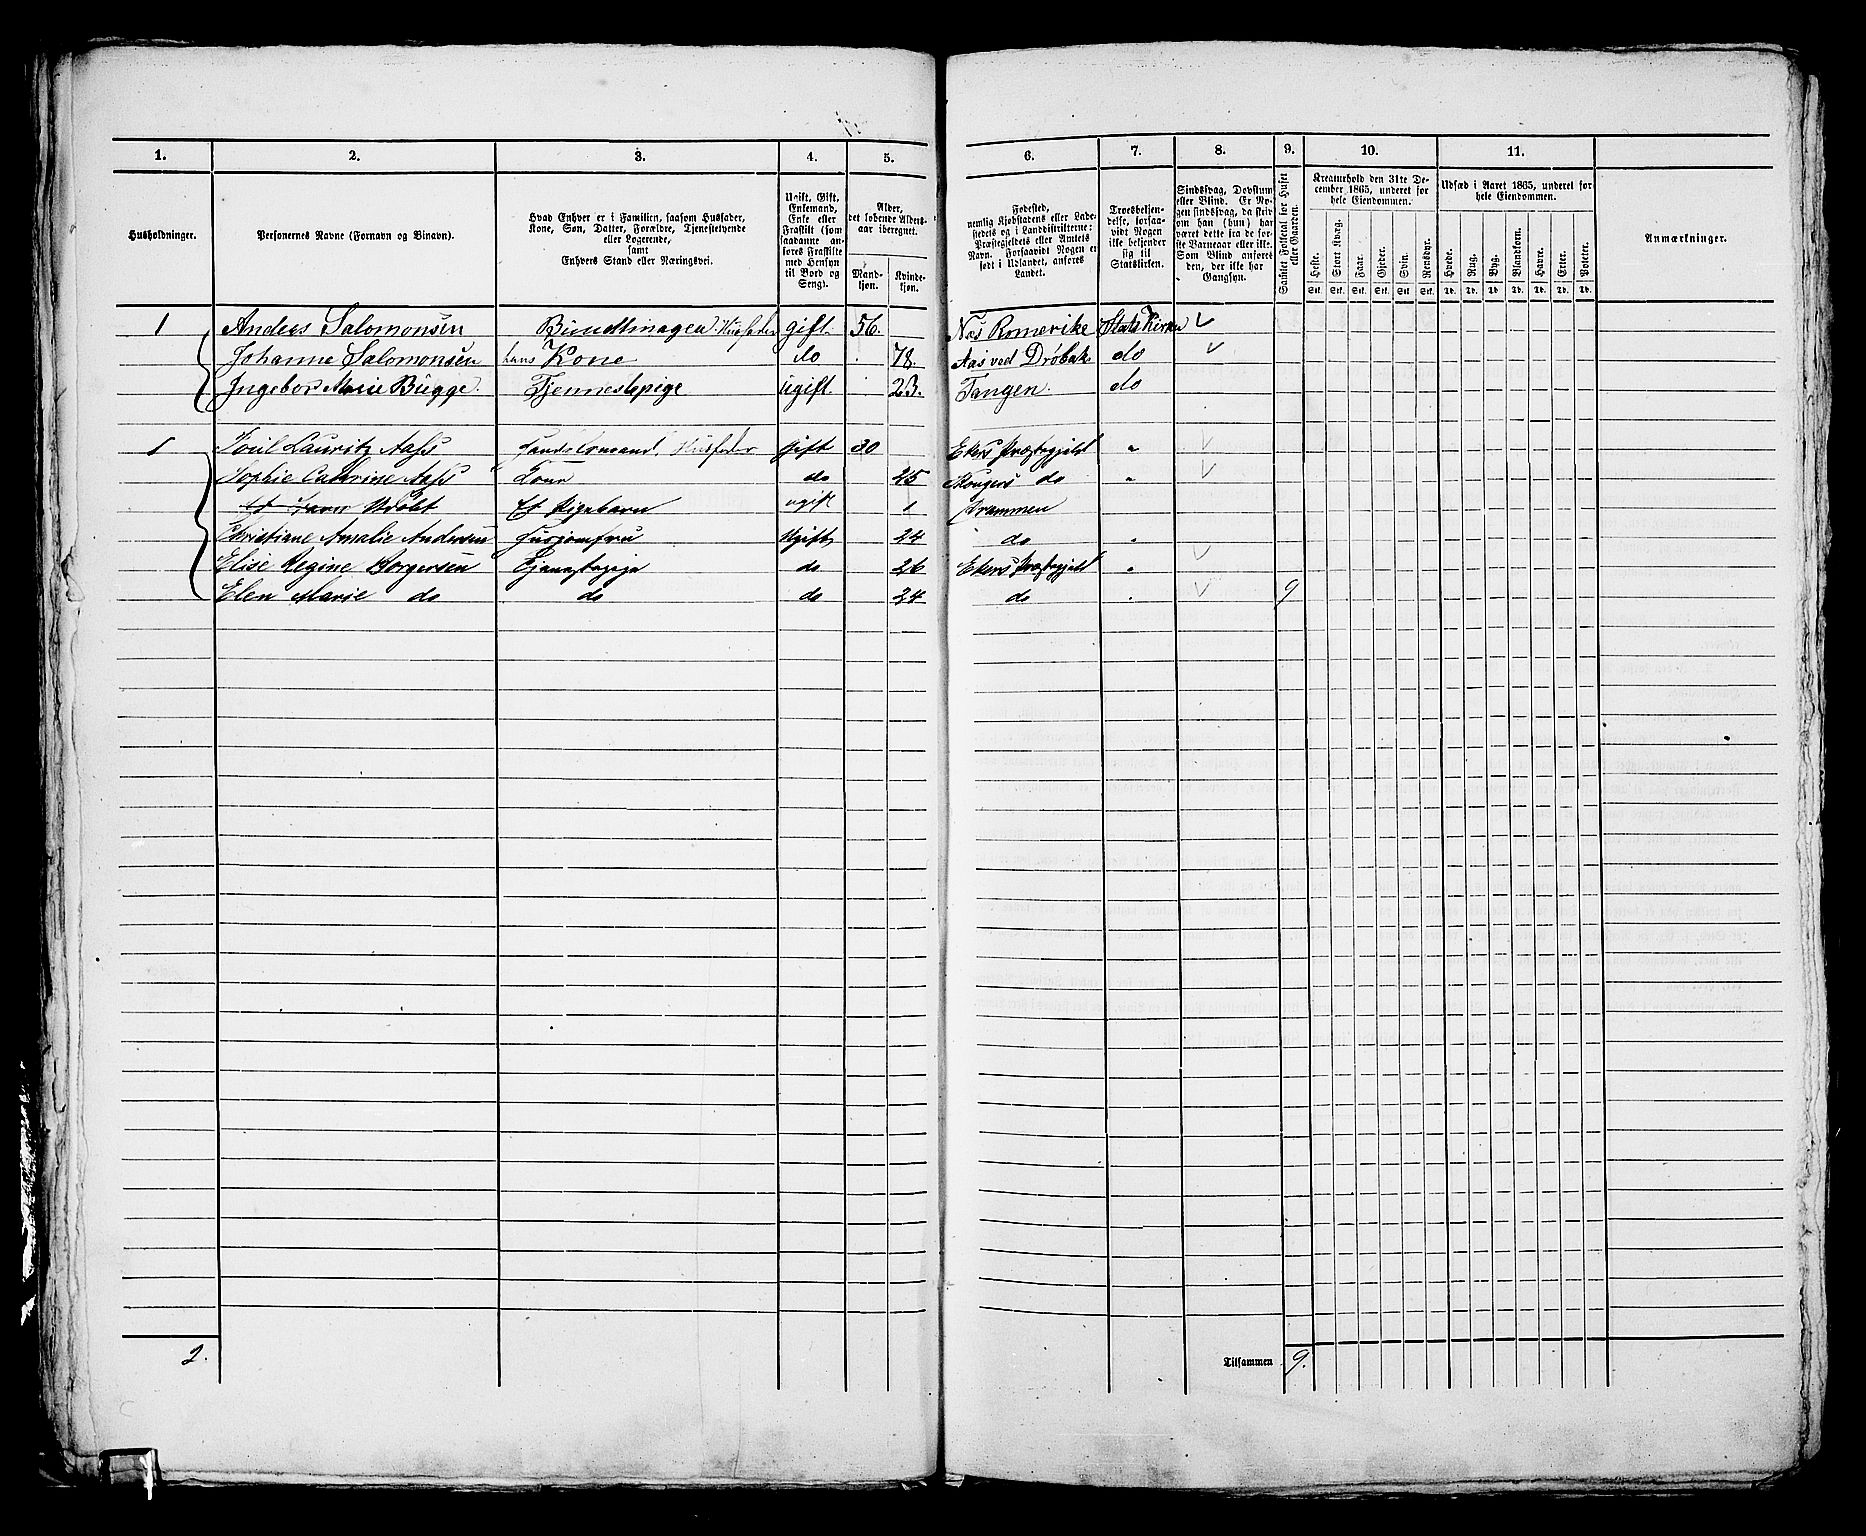 1. 2. 3. 4. 5. 6. 7. 8. 9. 10. 11.
Husholdninger.
Personernes Navne (Fornavn og Binavn).
Hvad Enhver er i Familien, saasom Husfader,
Kone, Søn, Datter, Forældre, Tjenestetyende
eller Logerende,
samt
Enhvers Stand eller Næringsvei.
Ugift, Gift,
Enkemand,
Enke eller
Fraskilt (som
saadanne an-
føres Fraskilte
med Hensyn
til Bord og
Seng).
Alder,
det løbende Alders-
aar iberegnet.
Mand-
kjøn.
Kvinde-
kjøn.
Fødested,
nemlig Kjøbstadens eller Lade-
stedets og i Landdistrikterne:
Præstegjeldets eller Amtets
Navn. Forsaavidt Nogen er
født i Udlandet, anføres
Landet.
Troesbekjen-
delse, forsaa-
vidt Nogen
ikke bekjender
sig til
Statskirken.
Sindssvag, Døvstum
eller Blind. Er No-
gen sindssvag, da skriv
om han (hun) har
været dette fra de før-
ste Barneaar eller ikke.
Som Blind anføres
den, der ikke har
Gangsyn.
Samlet Folketal for Huset
eller Gaarden.
Kreaturhold den 31te De-
cember 1865, underet for
hele Eiendommen.
Heste. Stort Kvæg. Faar. Gjeder. Svin. Rensdyr.
Stk. Stk. Stk. Stk. Stk. Stk.
Udsæd i Aaret 1865, underet for
hele Eiendommen.
Hvede. Rug. Byg. Blandkorn. Havre. Erter. Poteter.
Td. Td. Td. Td. Td. Td. Td.
Anmærkninger.
1 Anders Salomonsen Husfader gift. 56. Næs Romerike Stats Kirken
Johanne Salomonsen hans Kone do 78. Aas ved Drøbak do
Ingebor Marie Bugge. Tjennestepige ugift. 23. Tangen. do
1 Lauritz Aass Husfader Gift 30 Ekers Præstegjeld "
Sophie Catrine Aass Kone do 25 Skougers do "
Et Pigebarn ugift 1 Drammen
Christiane Amalie Andersen Husjomfru Ugift 24 do "
Elise Regine Borgersen Tjenestepige do 26 Ekers Præstegjeld "
Elen Marie do do do 24 do " 9
2.
Tilsammen 9.